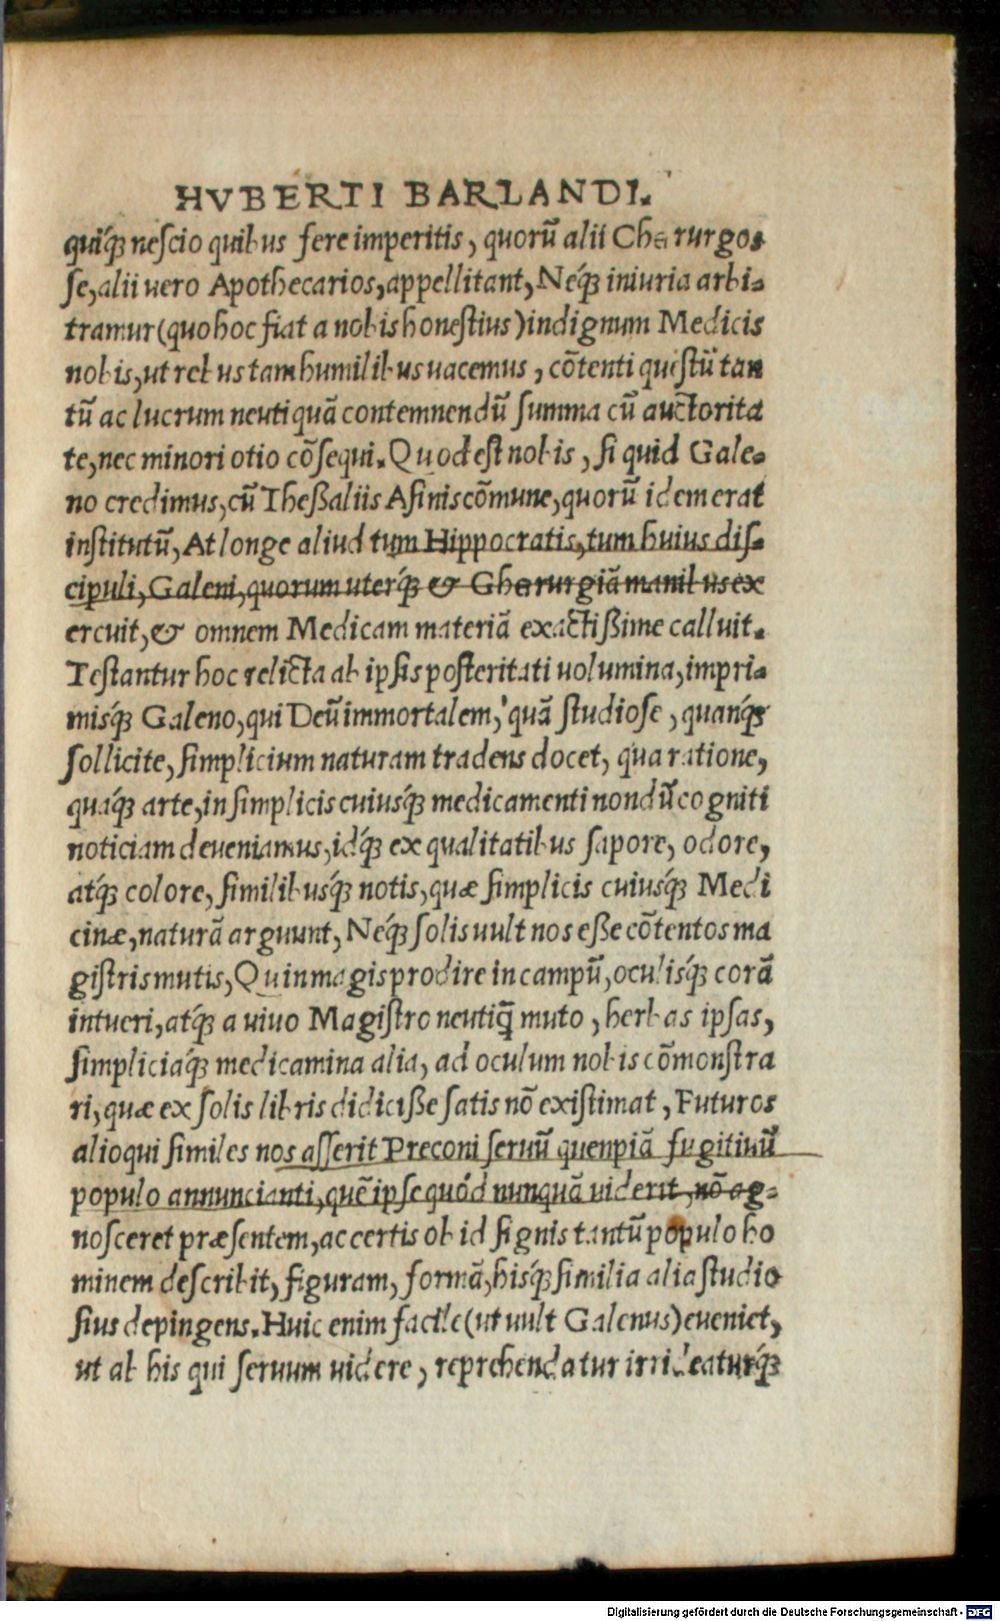 HVBERTI BARLANDI.
quiq́ꝫ nescio quibus fere imperitis, quorũ alii Cherurgos
se, alii uero Apothecarios, appellitant, Neq́ꝫ iniuria arbi-
tramur (quo hoc fiat a nobis honestius) indignum Medicis
nobis, ut rebus tam humilibus uacemus, cõtenti questũ tan
tũ ac lucrum neutiquã contemnendũ summa cũ auctorita
te, nec minori otio cõsequi. Quod est nobis, si quid Gale-
no credimus, cũ Thessaliis Asinis cõmune, quorũ idem erat
institutũ, At longe aliud tum Hippocratis, tum huius dis-
cipuli, Galeni, quorum uterq́ꝫ & Cherurgiã manibus ex
ercuit, & omnem Medicam materiã exactissime calluit.
Testantur hoc relicta ab ipsis posteritati uolumina, impri-
misq́ꝫ Galeno, qui Deũ immortalem, quã studiose, quanq́ꝫ
sollicite, simplicium naturam tradens docet, qua ratione,
quaq́ꝫ arte, in simplicis cuiusq́ꝫ medicamenti nondũ cogniti
noticiam deueniamus, idq́ꝫ ex qualitatibus sapore, odore,
atq́ꝫ colore, similibusq́ꝫ notis, quæ simplicis cuiusq́ꝫ Medi
cinæ, naturã arguunt, Neq́ꝫ solis uult nos esse cõtentos ma
gistris mutis, Quin magis prodire in campũ, oculisq́ꝫ corã
intueri, atq́ꝫ a uiuo Magistro neutiꝗ̃ muto, herbas ipsas,
simpliciaq́ꝫ medicamina alia, ad oculum nobis cõmonstra
ri, quæ ex solis libris didicisse satis nõ existimat, Futuros
alioqui similes nos asserit Preconi seruũ quenpiã fugitiuũ
populo annuncianti, quẽ ipse quód nunquã uiderit, nõ ag-
nosceret præsentem, ac certis ob id signis tantũ populo ho
minem describit, figuram, formã, hisq́ꝫ similia alia studio
sius depingens. Huic enim facile (ut uult Galenus) eueniet,
ut ab his qui seruum uidere, reprehendatur irrideaturq́ꝫ
Digitalisierung gefördert durch die Deutsche Forschungsgemeinschaft - DFG